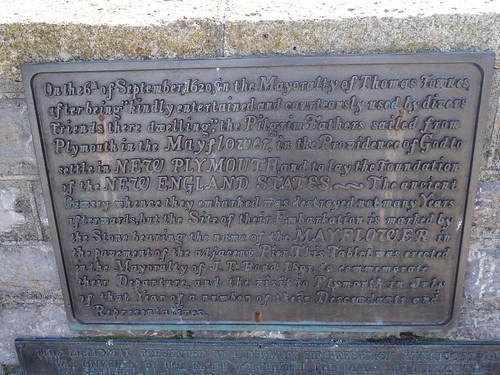 On the 6th of September, 1620, in the Mayoralty of Thomas Townes,
after being "kindly entertained and courteously used by divers
Friends there dwelling", the Pilgrim Fathers sailed from
Plymouth in the Mayflower, in the Providence of God to
settle in NEW PLYMOUTH, and to lay the Foundation
of the NEW ENGLAND STATES ~ The ancient
Cawsey whence they embarked was destroyed not many Years
afterwards, but the Site of their Embarkation is marked by
the Stone bearing the name of the MAYFLOWER in
the pavement of the adjacent Pier. This Tablet was erected
in the Mayoralty of J.T. Bond 1891, to commemorate
their Departure, and the visit to Plymouth in July
of that Year of a number of their Descendants and
Representatives.